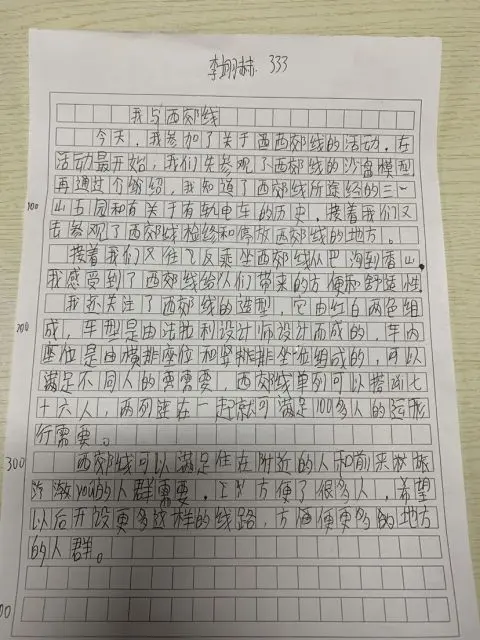 333
我与西郊线
今天,我参加了关于西西郊线的活动,在
活动最开始,我们先参观了西郊线的沙盘模型
再通过介绍,我知道了西郊线所途经的三一
100
山五园和有关于有轨电车的历史,接着我们又
去参观了西郊线检修和停放西郊线的地方。
接着我们又往飞反乘坐西郊线从巴沟到香山,
我感受到了西郊线给人们带来的方便和舒适性
我还关注了西郊线的造型,它由红白两色组
200
成,车型是由法拉利设计师设计而成的,车内
座位是由横排座位和竖排排坐位组成的,可以
满足不同人的需要,西郊线单列可以搭乘七
十六人,两列连在一起就可满足100多人的运形
行需要。
300
西郊线可以满足住在附近的人和前来旅旅
you的人群需要,方便了很多人,希望
以后开设更多这样的线路,方便更多的地方
的人群。
00